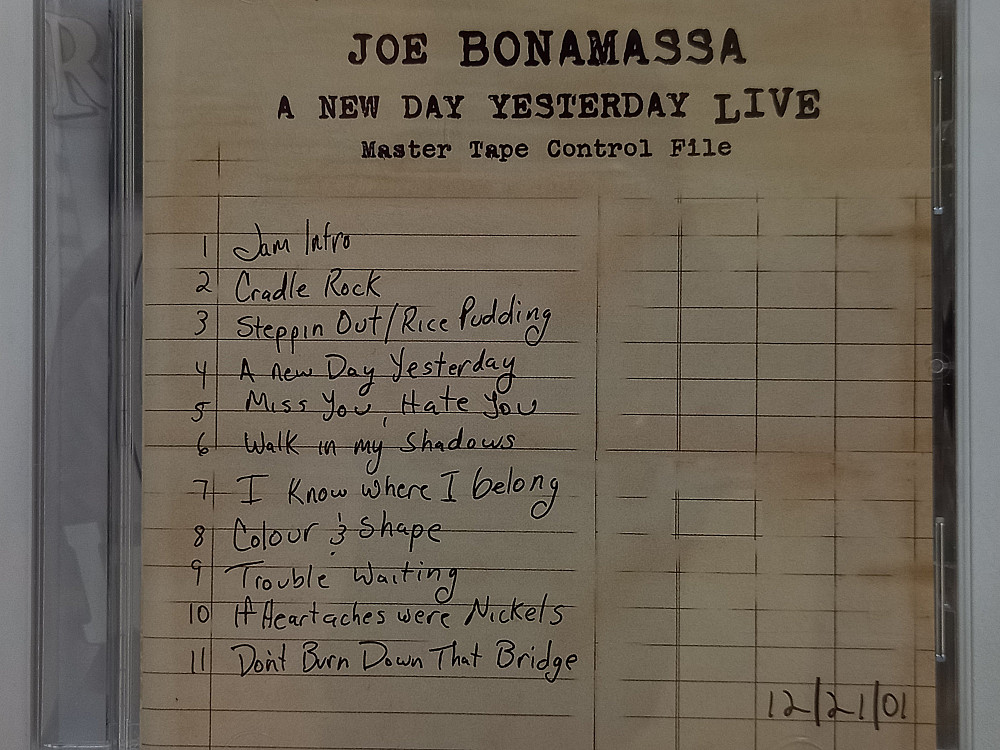 JOE BONAMASSA
A NEW DAY YESTERDAY LIVE
Master Tape Control File
1 Jam Intro
2 Cradle Rock
3 Steppin Out/Rice Pudding
4 A new Day Yesterday
5 Miss You, Hate You
6 Walk in my Shadows
7 I Know where I belong
8 Colour & Shape
9 Trouble Waiting
10 If Heartaches were Nickels
11 Don't Burn Down That Bridge
12/21/01